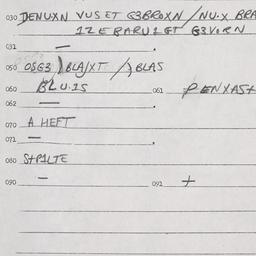 030 DENUXN VUS ET G3BROXN / NU.X BRA
1ZEBARU1GT G3VORN
031 —
050 OSG3 ) BLAJXT / ) BLAS
060 BLU.1S 061 PENXAST
062 —
070 A HEFT
071 —
080 STP1LTE
090 — 091 +